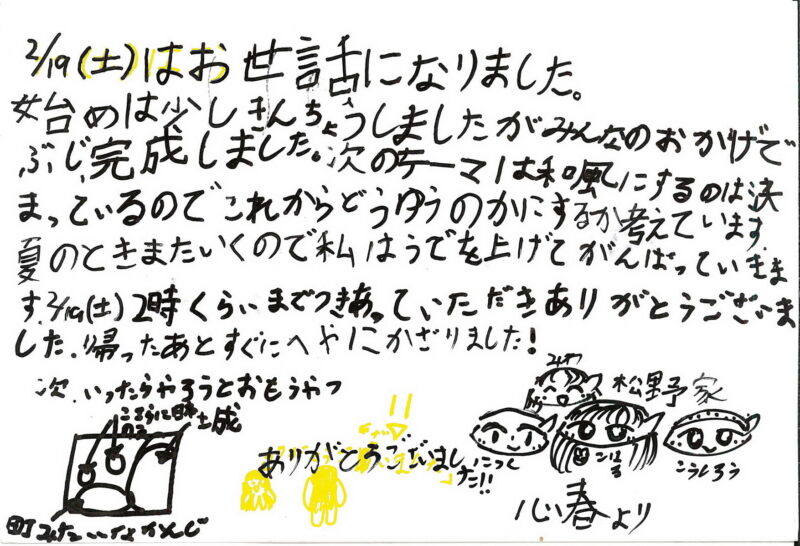 2/19(土)はお世話になりました。
始めは少しきんちょうしましたがみんなのおかげで
ぶじ完成しました。次のテーマは和風にするのは決
まっているのでこれからどうゆうのかにするか考えています。
夏のときまたいくので私はうでを上げてがんばっていきま
す。2/19(土)2時くらいまでつきあっていただきありがとうございま
した。帰ったあとすぐにへやにかざりました!
次、いったらやろうとおもうやつ
土成
町みたいなかんじ
ありがとうございました!!
松野家
こはる
こうしろう
心春より